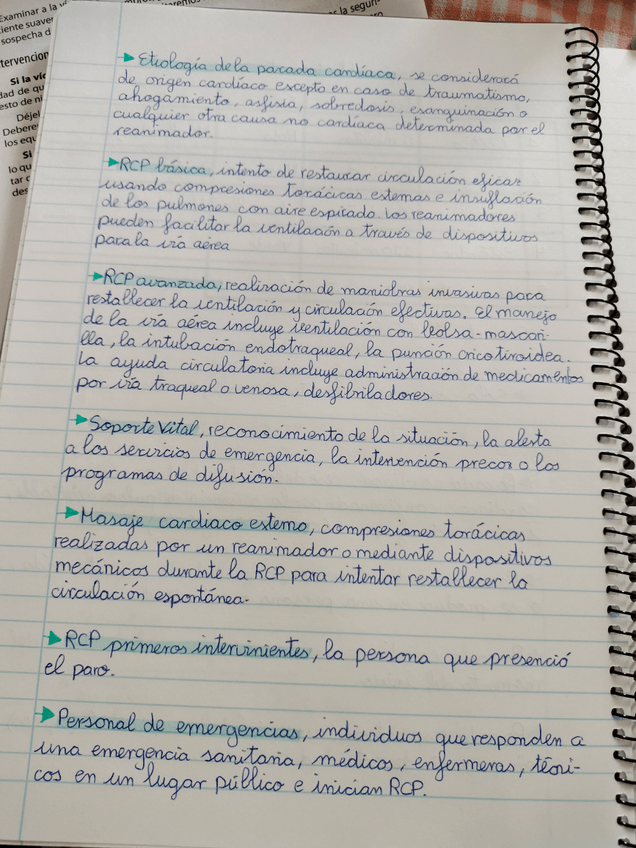 Examinar a la ví
ciente suaver
sospecha d
tervencion
Si la víc
dad de qu
esto de ni
Déjel
Debere
los equ
Si
lo qu
tar c
des
es la seguri
→ Etiología de la parada cardíaca, se considerará
de origen cardíaco excepto en caso de traumatismo,
ahogamiento, asfisia, sobredosis, exanguinación o
cualquier otra causa no cardíaca determinada por el
reanimador.
→ RCP básica, intento de restaurar circulación eficaz
usando compresiones torácicas externas e insuflación
de los pulmones con aire espirado. Los reanimadores
pueden facilitar la ventilación a través de dispositivos
para la vía aérea
→ RCP avanzada, realización de maniobras invasivas para
restablecer la ventilación y circulación efectivas. El manejo
de la vía aérea incluye ventilación con bolsa-mascari-
lla, la intubación endotraqueal, la punción cricotiroidea.
La ayuda circulatoria incluye administración de medicamentos
por vía traqueal o venosa, desfibriladores.
→ Soporte Vital, reconocimiento de la situación, la alerta
a los servicios de emergencia, la intervención precoz o los
programas de difusión.
→ Masaje cardiaco externo, compresiones torácicas
realizadas por un reanimador o mediante dispositivos
mecánicos durante la RCP para intentar restablecer la
circulación espontánea.
→ RCP primeros intervinientes, la persona que presenció
el paro.
→ Personal de emergencias, individuos que responden a
una emergencia sanitaria, médicos, enfermeras, técni-
cos en un lugar público e inician RCP.